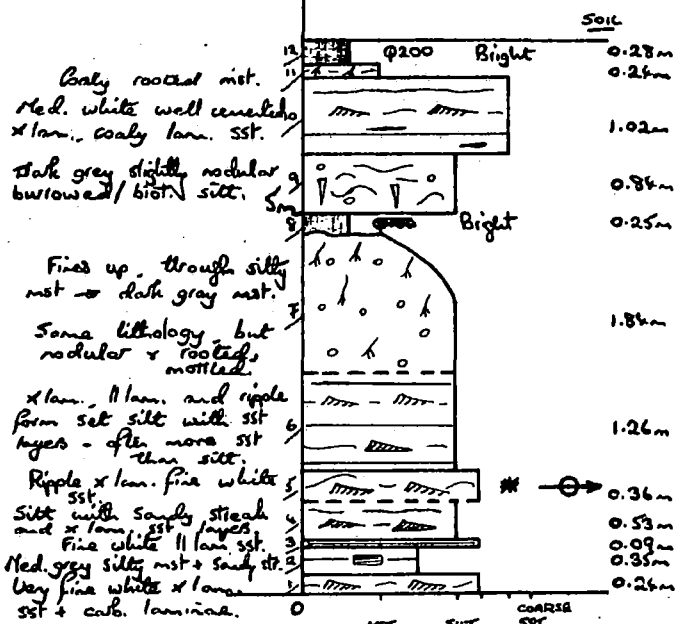 SOIL
12 φ200 Bright 0.28m
11 0.24m
Coaly rooted mst.
Med. white well cemented
x lam., coaly lam. sst.
10 1.02m
Dark grey slightly nodular
burrowed/biot. silt.
9 0.84m
5m
8 Bright 0.25m
Fines up, through silty
mst → dark gray mst.
7 1.84m
Same lithology, but
nodular & rooted,
mottled.
x lam., ll lam. and ripple
form set silt with sst
layers - often more sst
than silt.
6 1.26m
Ripple x lam. fine white
sst.
5 0.36m
Silt with sandy streak
and x lam. sst layers.
4 0.53m
Fine white ll lam sst.
3 0.09m
Med. grey silty mst + sandy str.
2 0.35m
Very fine white x lam.
sst + carb. laminae.
1 0.24m
0
COARSE